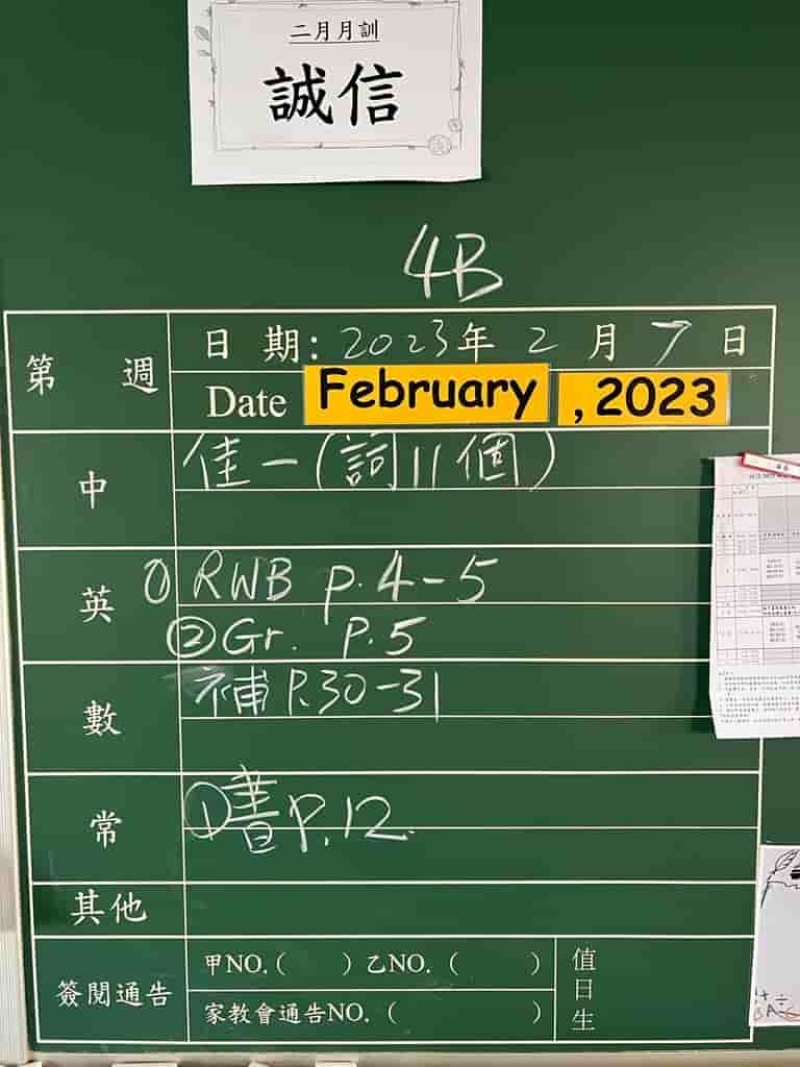 二月月訓
誠信
4B
第 週
日 期: 2023年 2 月 7 日
Date February , 2023
中
佳一(詞11個)
英
① RWB p.4-5
② Gr. P.5
數
補 P.30-31
常
①書P.12
其他
簽閱通告
甲NO.( ) 乙NO. ( )
家教會通告NO. ( )
值日生